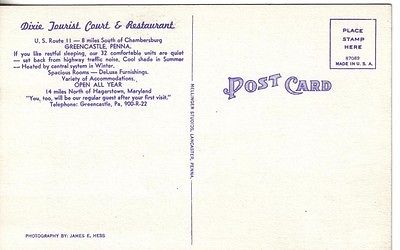 Dixie Tourist Court & Restaurant
U. S. Route 11 — 8 miles South of Chambersburg
GREENCASTLE, PENNA.
If you like restful sleeping, our 32 comfortable units are quiet
— set back from highway traffic noise. Cool shade in Summer
— Heated by central system in Winter.
Spacious Rooms — DeLuxe Furnishings.
Variety of Accommodations.
OPEN ALL YEAR
14 miles North of Hagerstown, Maryland
"You, too, will be our regular guest after your first visit."
Telephone: Greencastle, Pa, 900-R-22
PHOTOGRAPHY BY: JAMES E. HESS
MELLINGER STUDIOS, LANCASTER, PENNA.
POST CARD
PLACE
STAMP
HERE
87089
MADE IN U. S. A.